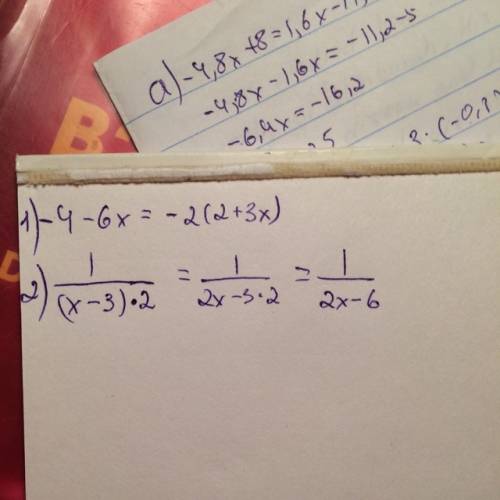 a) -4,8x+8=1,6x-11,
-4,8x-1,6x=-11,2-5
-6,4x=-16,2
1) -4-6x = -2(2+3x)
2) 1/((x-3)·2) = 1/(2x-3·2) = 1/(2x-6)